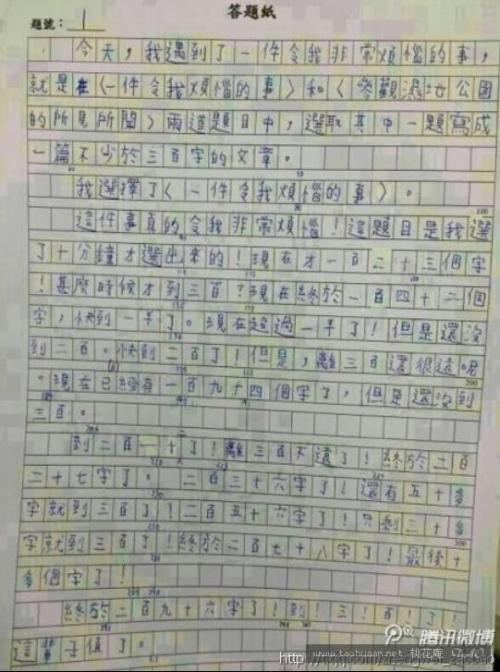 答題紙
題號：1
今天，我遇到了一件令我非常煩惱的事，
就是在〈一件令我煩惱的事〉和〈參觀濕地公園
的所見所聞〉兩道題目中，選取其中一題寫成
一篇不少於三百字的文章。
我選擇了〈一件令我煩惱的事〉。
這件事真的令我非常煩惱！這題目是我選
了十分鐘才選出來的！現在才一百二十三個字
！甚麼時候才到三百？現在終於一百四十二個
字，快到一半了。現在超過一半了！但是還沒
到二百。快到二百了！但是，離三百還很遠呢
。現在已經有一百九十四個字了，但是還沒到
三百。
到二百一十了！離三百不遠了！終於二百
二十七字了。二百三十六字了！還有五十多
字就到三百了！二百五十六字了！只剩三十多
字就到三百了！終於二百七十八字了！最後十
多個字了！
終於二百九十六字了！到！三！百！了！
這輩子值了。
腾讯微博